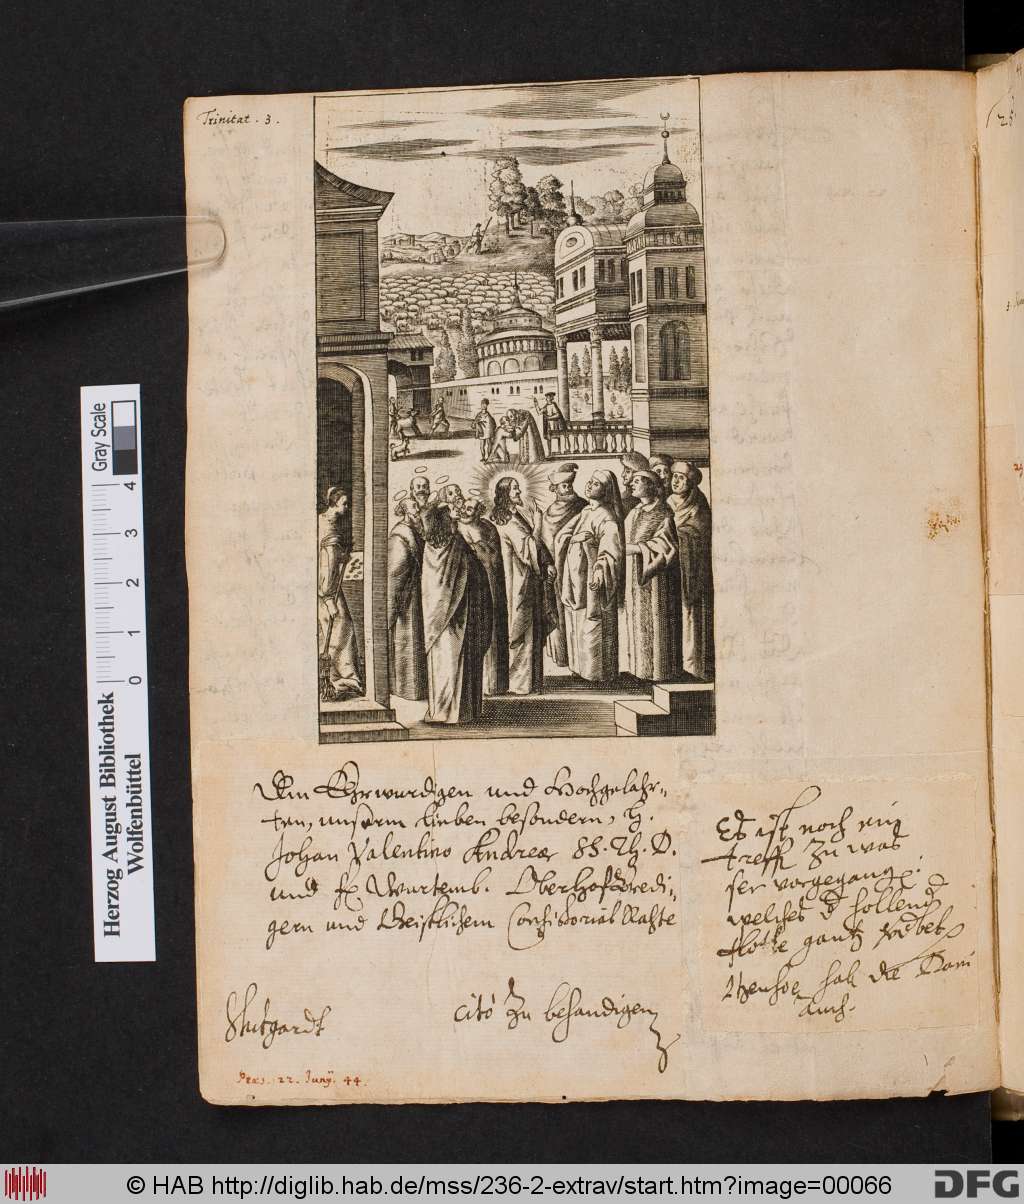 Trinitat. 3.
Dem Ehrwürdigen und Hochgelahr-
ten, unserm lieben besondern, H.
Johan Valentino Andreæ SS. Th. D.
und fr. Würtemb. Oberhofpredi-
gern und Geistlichem Consistorial Rahte
Stutgardt
cito zu behandigen
Præs. 22. Junij. 44.
Es ist noch ein
treffen zu was
ser vorgegangen.
welches d hollend
flotte gantz
hab die
auch.
Gray Scale
0 1 2 3 4
Herzog August Bibliothek
Wolfenbüttel
© HAB http://diglib.hab.de/mss/236-2-extrav/start.htm?image=00066
DFG